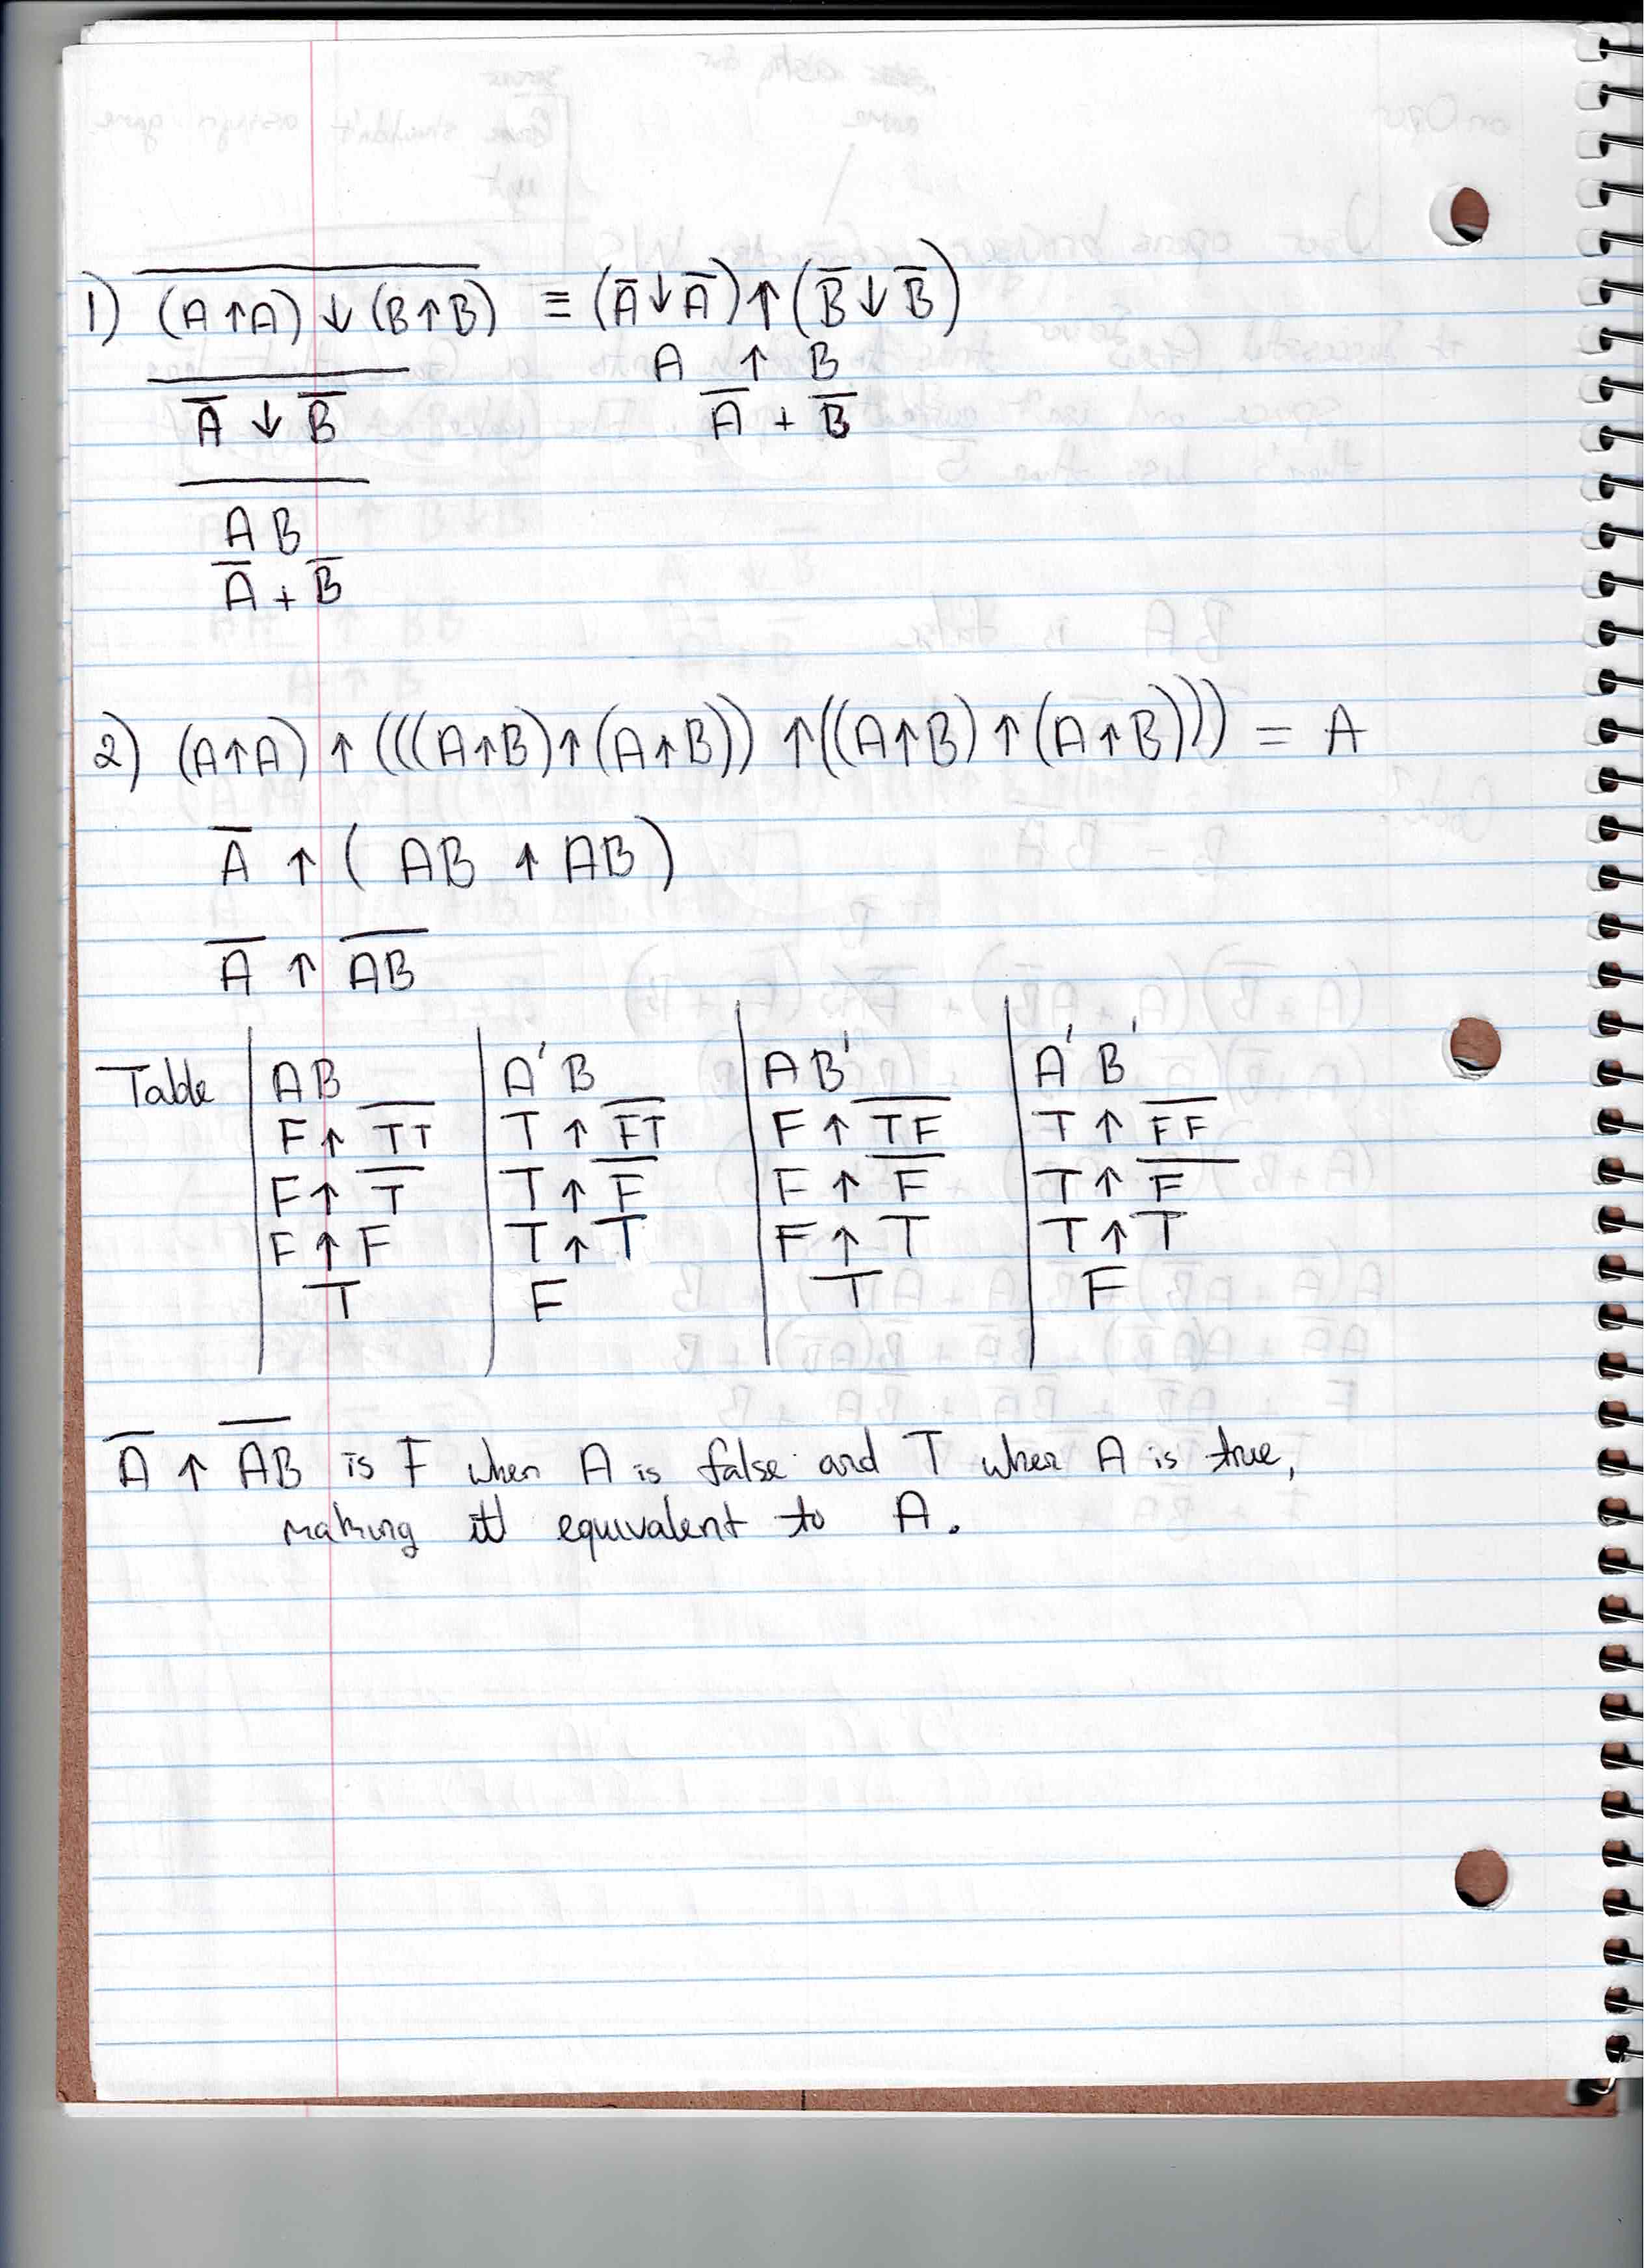 1) \overline{(A↑A) ↓ (B↑B)} ≡ (\overline{A}↓\overline{A})↑(\overline{B}↓\overline{B})
\overline{\overline{A} ↓ \overline{B}} A ↑ B
\overline{A} + \overline{B}
\overline{AB}
\overline{A} + \overline{B}
2) (A↑A) ↑ (((A↑B)↑(A↑B)) ↑((A↑B)↑(A↑B))) = A
\overline{A} ↑ ( AB ↑ AB )
\overline{A} ↑ \overline{AB}
Table | AB | A'B | AB' | A'B'
F↑ \overline{TT} | T ↑ \overline{FT} | F↑ \overline{TF} | T↑ \overline{FF}
F↑ \overline{T} | T↑ \overline{F} | F ↑ \overline{F} | T↑ \overline{F}
F↑F | T↑T | F↑T | T↑T
T | F | T | F
\overline{A} ↑ \overline{AB} is F when A is false and T when A is true,
making it equivalent to A.